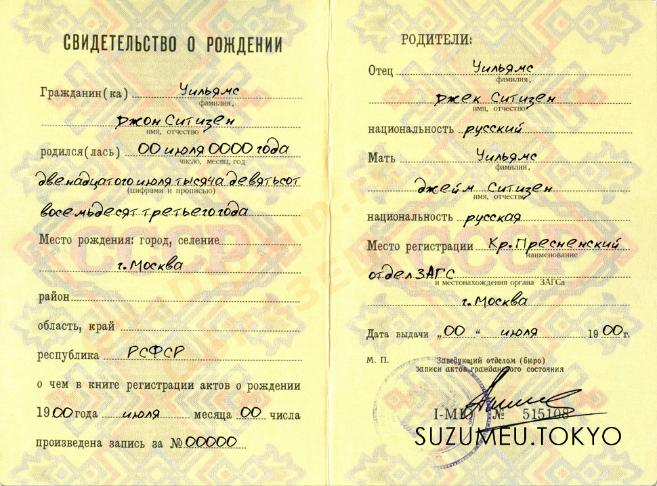 СВИДЕТЕЛЬСТВО О РОЖДЕНИИ
Гражданин(ка) Уильямс
фамилия,
Джон Ситизен
имя, отчество
родился(лась) 00 июля 0000 года
число, месяц, год
двенадцатого июля тысяча девятьсот
(цифрами и прописью)
восемьдесят третьего года
Место рождения: город, селение
г. Москва
район
область, край
республика РСФСР
о чем в книге регистрации актов о рождении
1900 года июля месяца 00 числа
произведена запись за № 00000
РОДИТЕЛИ:
Отец Уильямс
фамилия,
Джек Ситизен
имя, отчество
национальность русский
Мать Уильямс
фамилия,
джейм Ситизен
имя, отчество
национальность русская
Место регистрации Кр. Пресненский
наименование
отдел ЗАГС
и местонахождения органа ЗАГСа
г. Москва
Дата выдачи „00“ июля 1900г.
М. П. Заведующий отделом (бюро)
записи актов гражданского состояния
I-МЮ № 515108
SUZUMEU.TOKYO